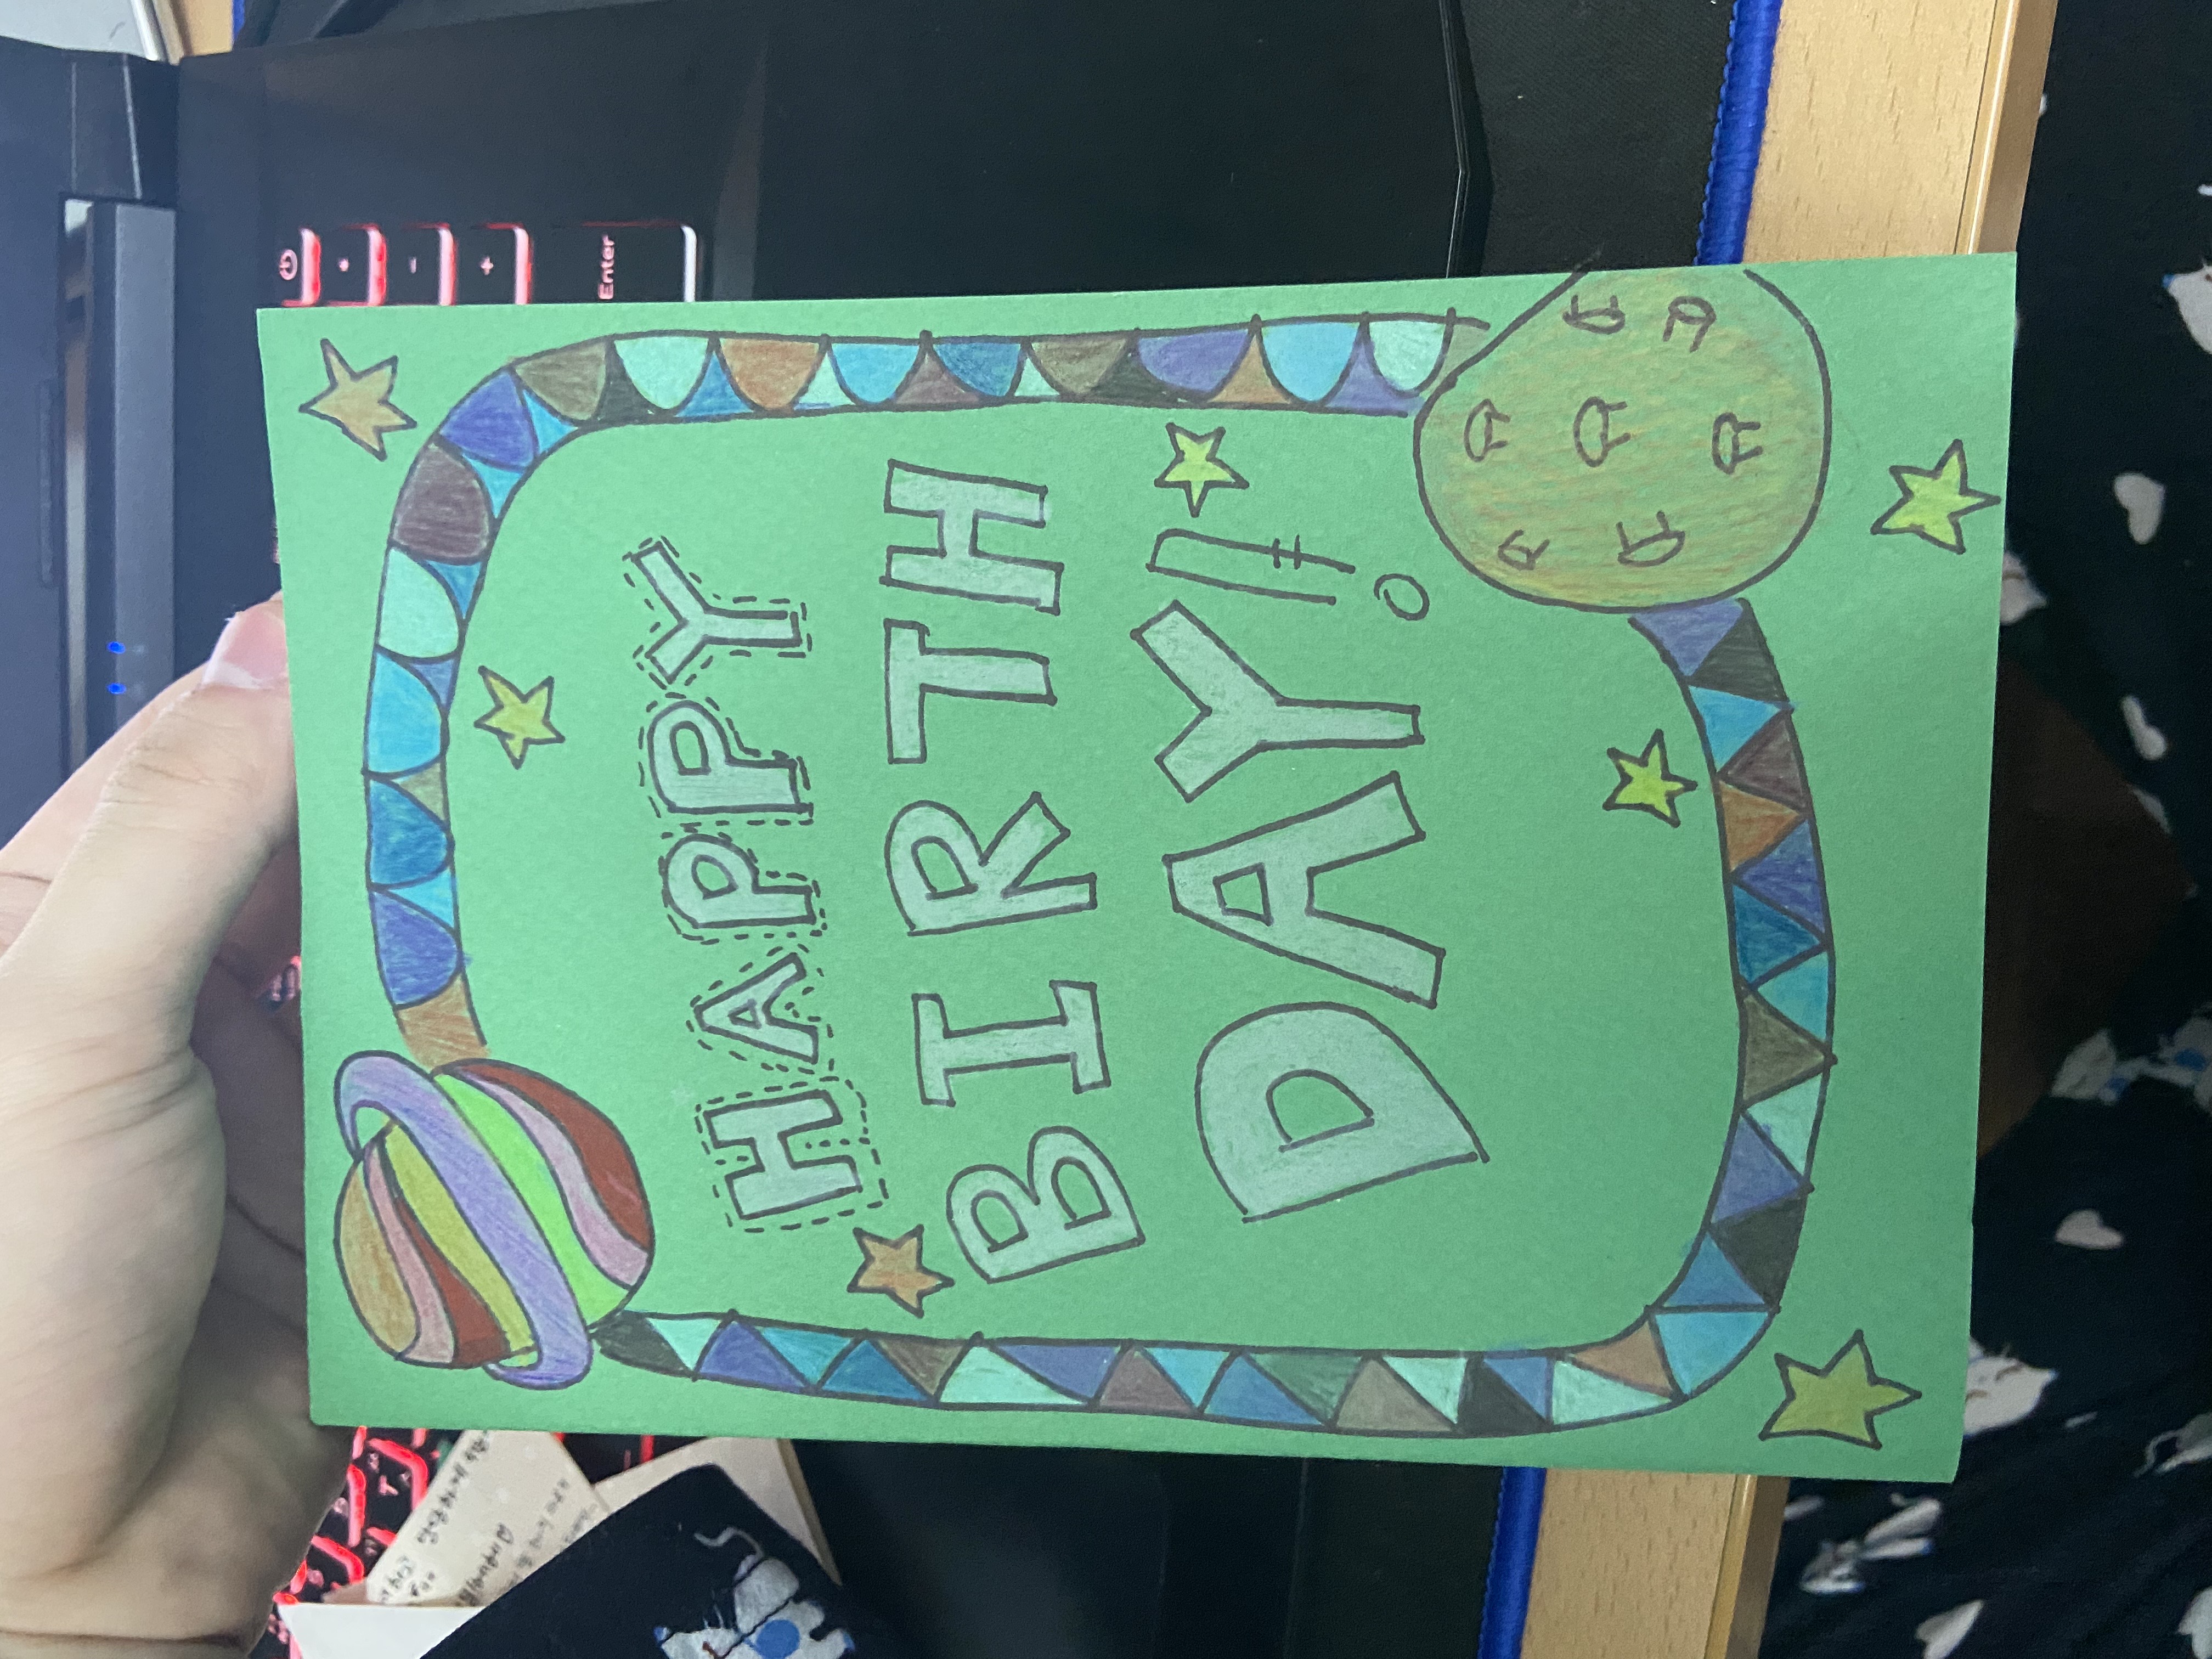 HAPPY
BIRTH
DAY!
Enter
T
*
-
+